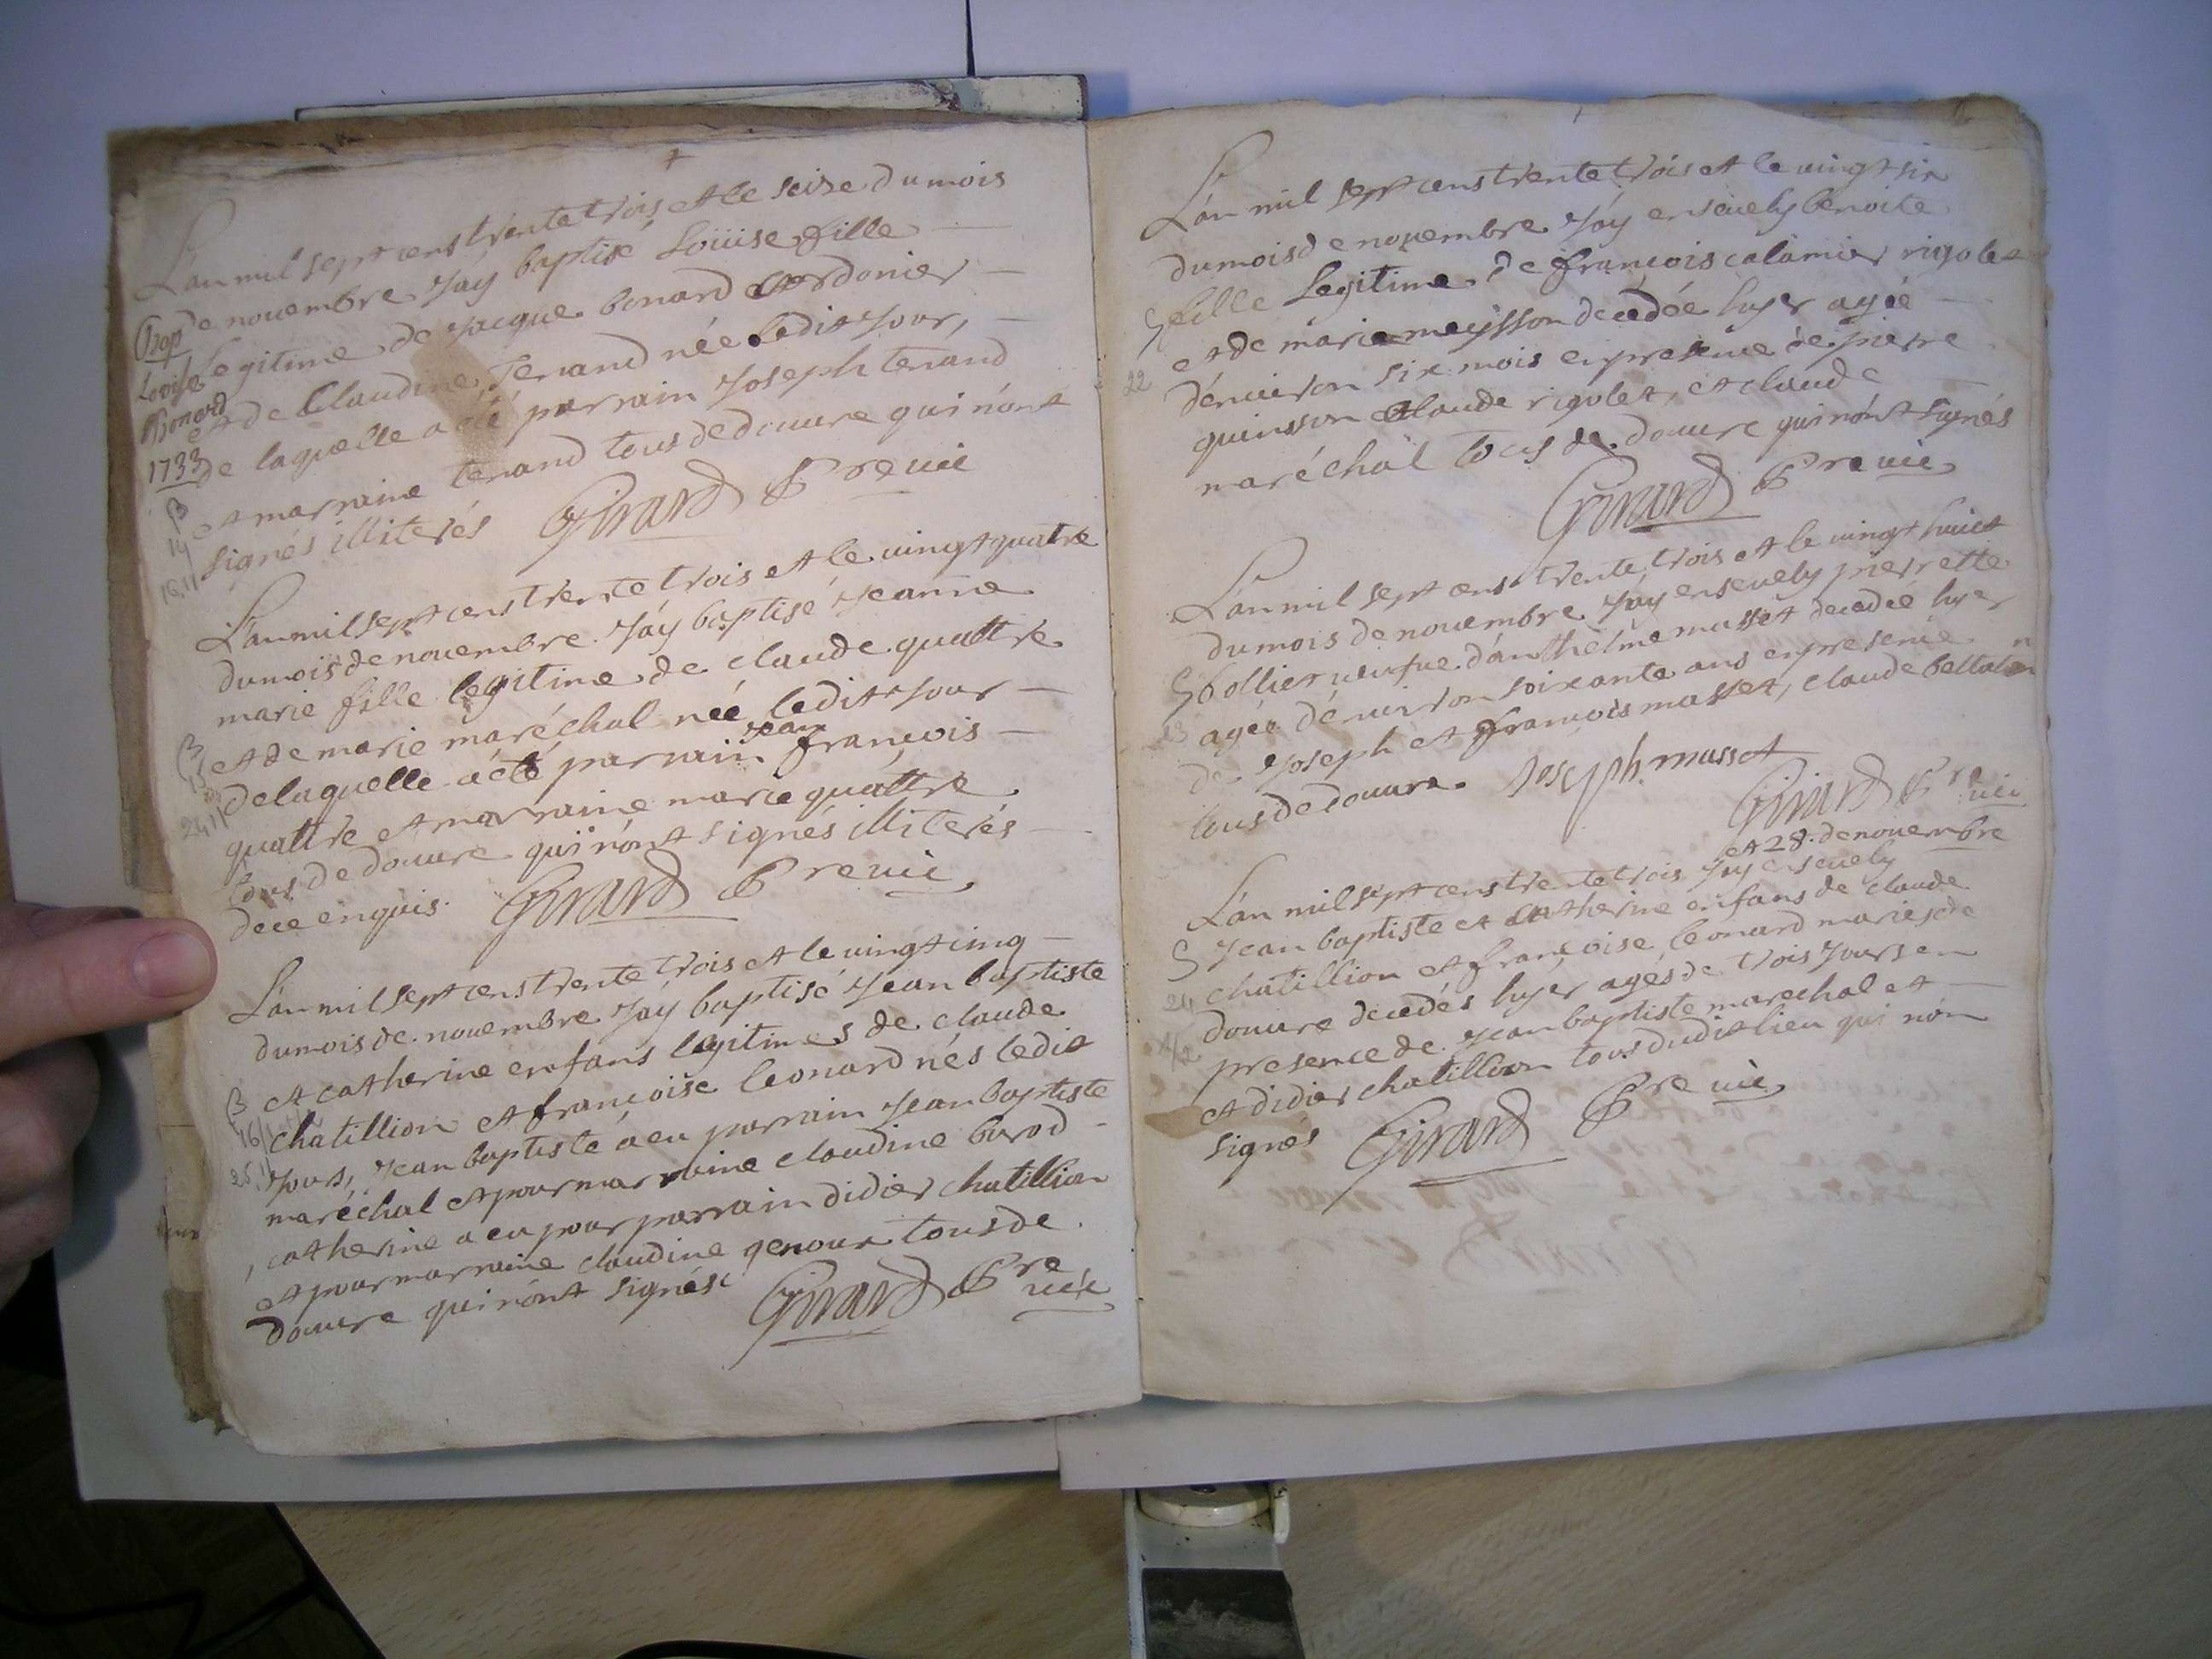 L'an mil sept cens trente trois et le seise du mois
de novembre J'áy baptisé Loüise fille
legitime de Jacque bonard cordonier
et de Claudine Tenand née ledit Jour,
de laquelle a été parrain Joseph tenand
et marraine tenand tous de douvre qui n'ont
signés illiterés Girard Pre vic
Bap
Louise
Bonard
1733
B
14
16,11
L'an mil sept cens trente trois et le vingt quatre
du mois de novembre J'áy baptisé Jeanne
marie fille legitime de claude quattre
et de marie maréchal née ledit Jour
de laquelle a été parrain Jean françois
quattre et marraine marie quattre
tous de douvre qui n'ont signés illiterés
de ce enquis. Girard Pre vic,
B
15
24,11
L'an mil sept cens trente trois et le vingt cinq
du mois de novembre J'áy baptisé Jean baptiste
et catherine enfans legitimes de claude
chatillion et françoise leonard nés ledit
Jour, Jean baptiste a eu parrain Jean baptiste
maréchal et pour marraine claudine barod
, catherine a eu pour parrain didier chatillion
et pour marraine claudine genoux tous de
douvre qui n'ont signés Girard Pre vic
B
16/
25,11
L'an mil sept cens trente trois et le vingt six
du mois de novembre J'áy ensevely benoite
fille Legitime de françois calamier rigolet
et de marie meysson decedée hyer agée
d'environ six mois en presence de pierre
quinsson claude rigolet, et claude
maréchal tous de douvre qui n'ont signés
Girard Pre vic,
S
22
L'an mil sept cens trente trois et le vingt huict
du mois de novembre J'áy ensevely pierrette
bollier veufve d'anthelme masset decedée hyer
agée d'environ soixante ans en presence
de Joseph et françois masset, claude
tous de douvre. Joseph masset
Girard Pre vic
S
23
et 28. de novembre
L'an mil sept cens trente trois J'áy ensevely
Jean baptiste et catherine enfans de claude
chatillion et françoise leonard mariés de
douvre decedés hyer agés de trois Jours en
presence de Jean baptiste marechal et
et didier chatillion tous dudit lieu qui n'on
signés Girard Pre vic,
S
24